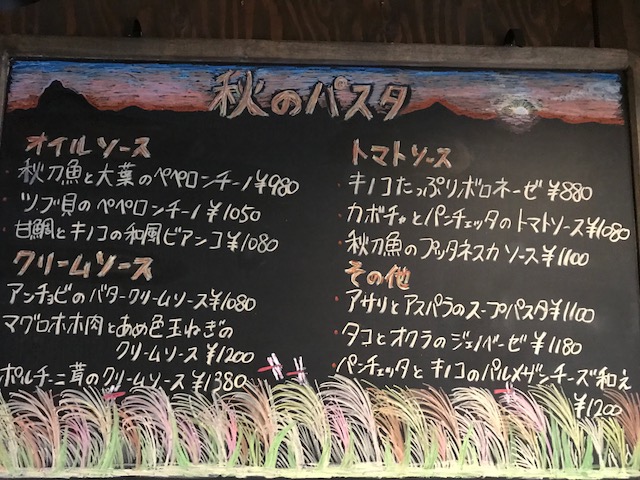 秋のパスタ
オイルソース
・秋刀魚と大葉のペペロンチーノ¥980
・ツブ貝のペペロンチーノ¥1050
・甘鯛とキノコの和風ビアンコ¥1080
クリームソース
アンチョビのバタークリームソース¥1080
マグロホホ肉とあめ色玉ねぎの
クリームソース¥1200
ポルチーニ茸のクリームソース¥1380
トマトソース
・キノコたっぷりボロネーゼ¥880
・カボチャとパンチェッタのトマトソース¥1080
・秋刀魚のプッタネスカソース¥1100
その他
・アサリとアスパラのスープパスタ¥1100
・タコとオクラのジェノベーゼ¥1180
・パンチェッタとキノコのパルメザンチーズ和え
¥1200